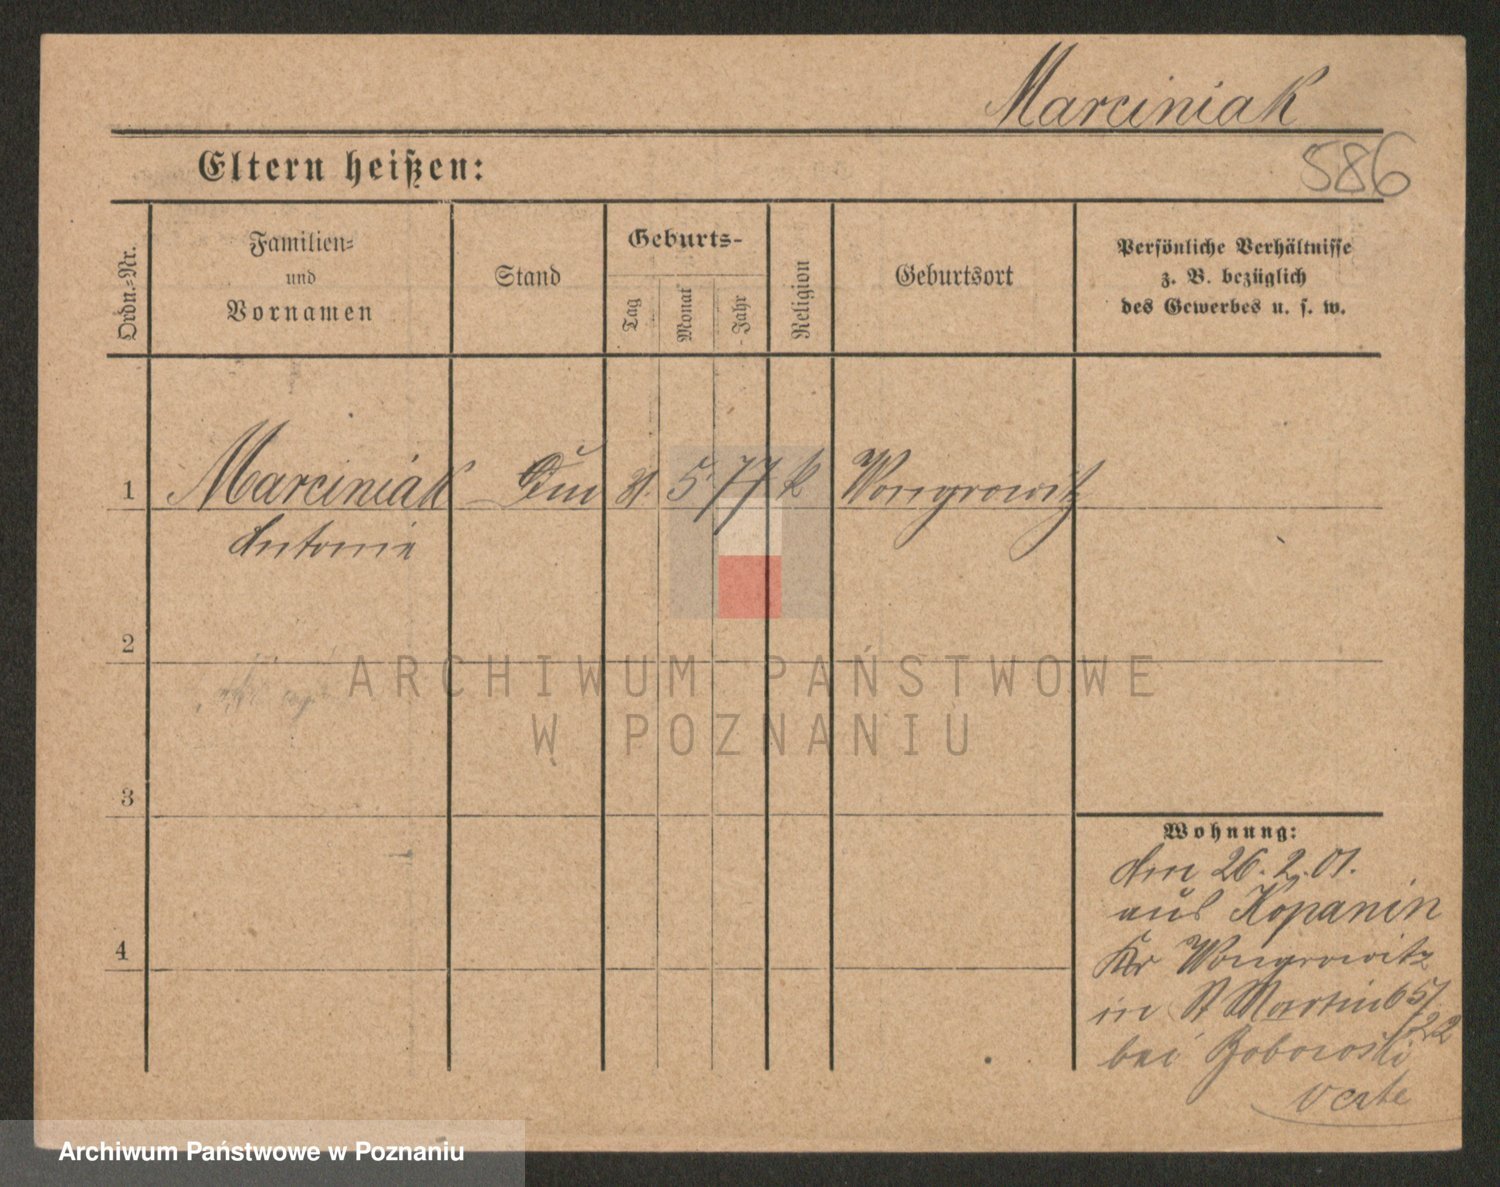 Marciniak
586
Eltern heißen:
Ordn.-Nr.
Familien-
und
Vornamen
Stand
Geburts-
Tag
Monat
Jahr
Religion
Geburtsort
Persönliche Verhältnisse
z. B. bezüglich
des Gewerbes u. s. w.
1 Marciniak 5 77 k Wongrowitz
Antonie
2
3
4
Wohnung:
den 26.2.01.
aus Kopanin
Kr Wongrowitz
in St Martin
bei
verte
ARCHIWUM PAŃSTWOWE
W POZNANIU
Archiwum Państwowe w Poznaniu